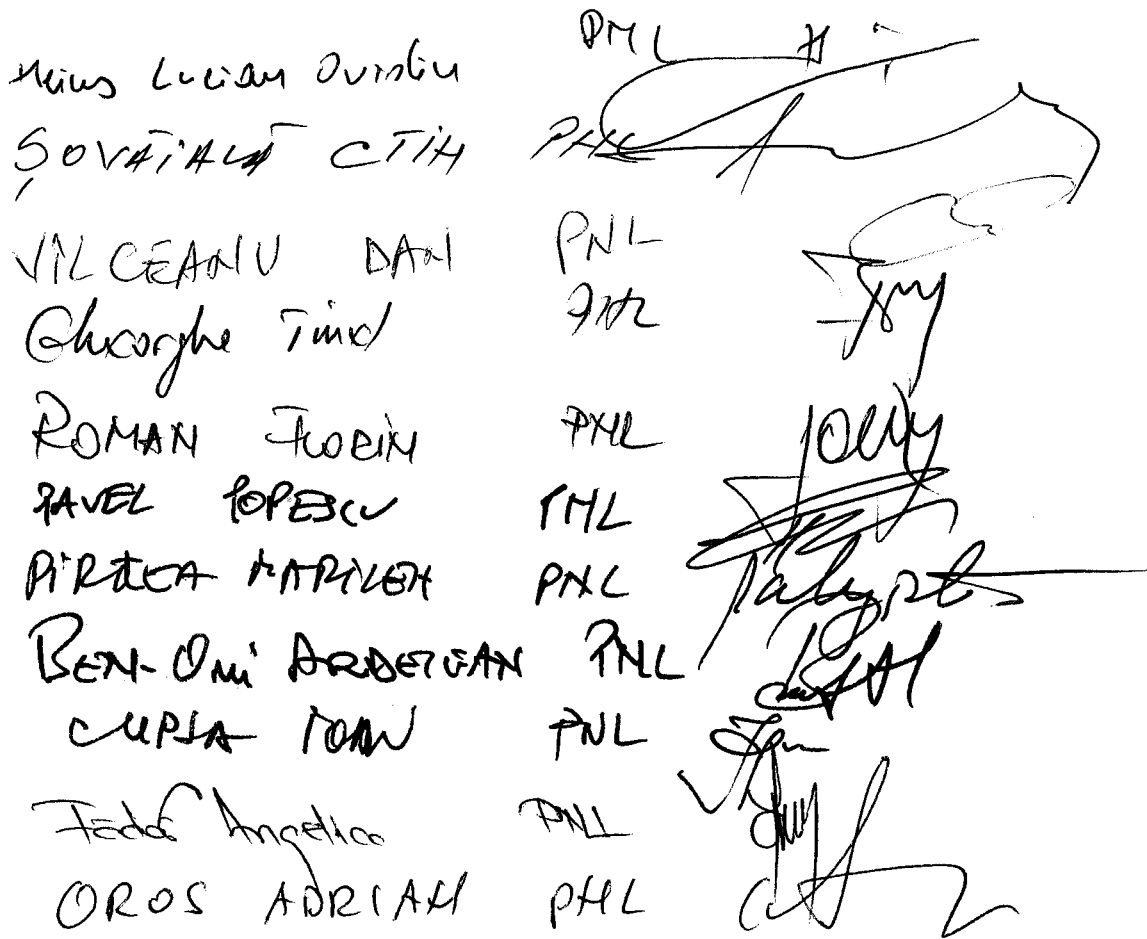 Heius Lucian Ovidiu PNL
ȘOVĂIALĂ CTIN PNL
VÎLCEANU DAN PNL
Gheorghe Tinel PNL
ROMAN FLORIN PNL
PAVEL POPESCU PNL
PIRTEA MARILEN PNL
BEN-Oni ARDELEAN PNL
CUPȘA IOAN PNL
Fădor Angelica PNL
OROS ADRIAN PNL